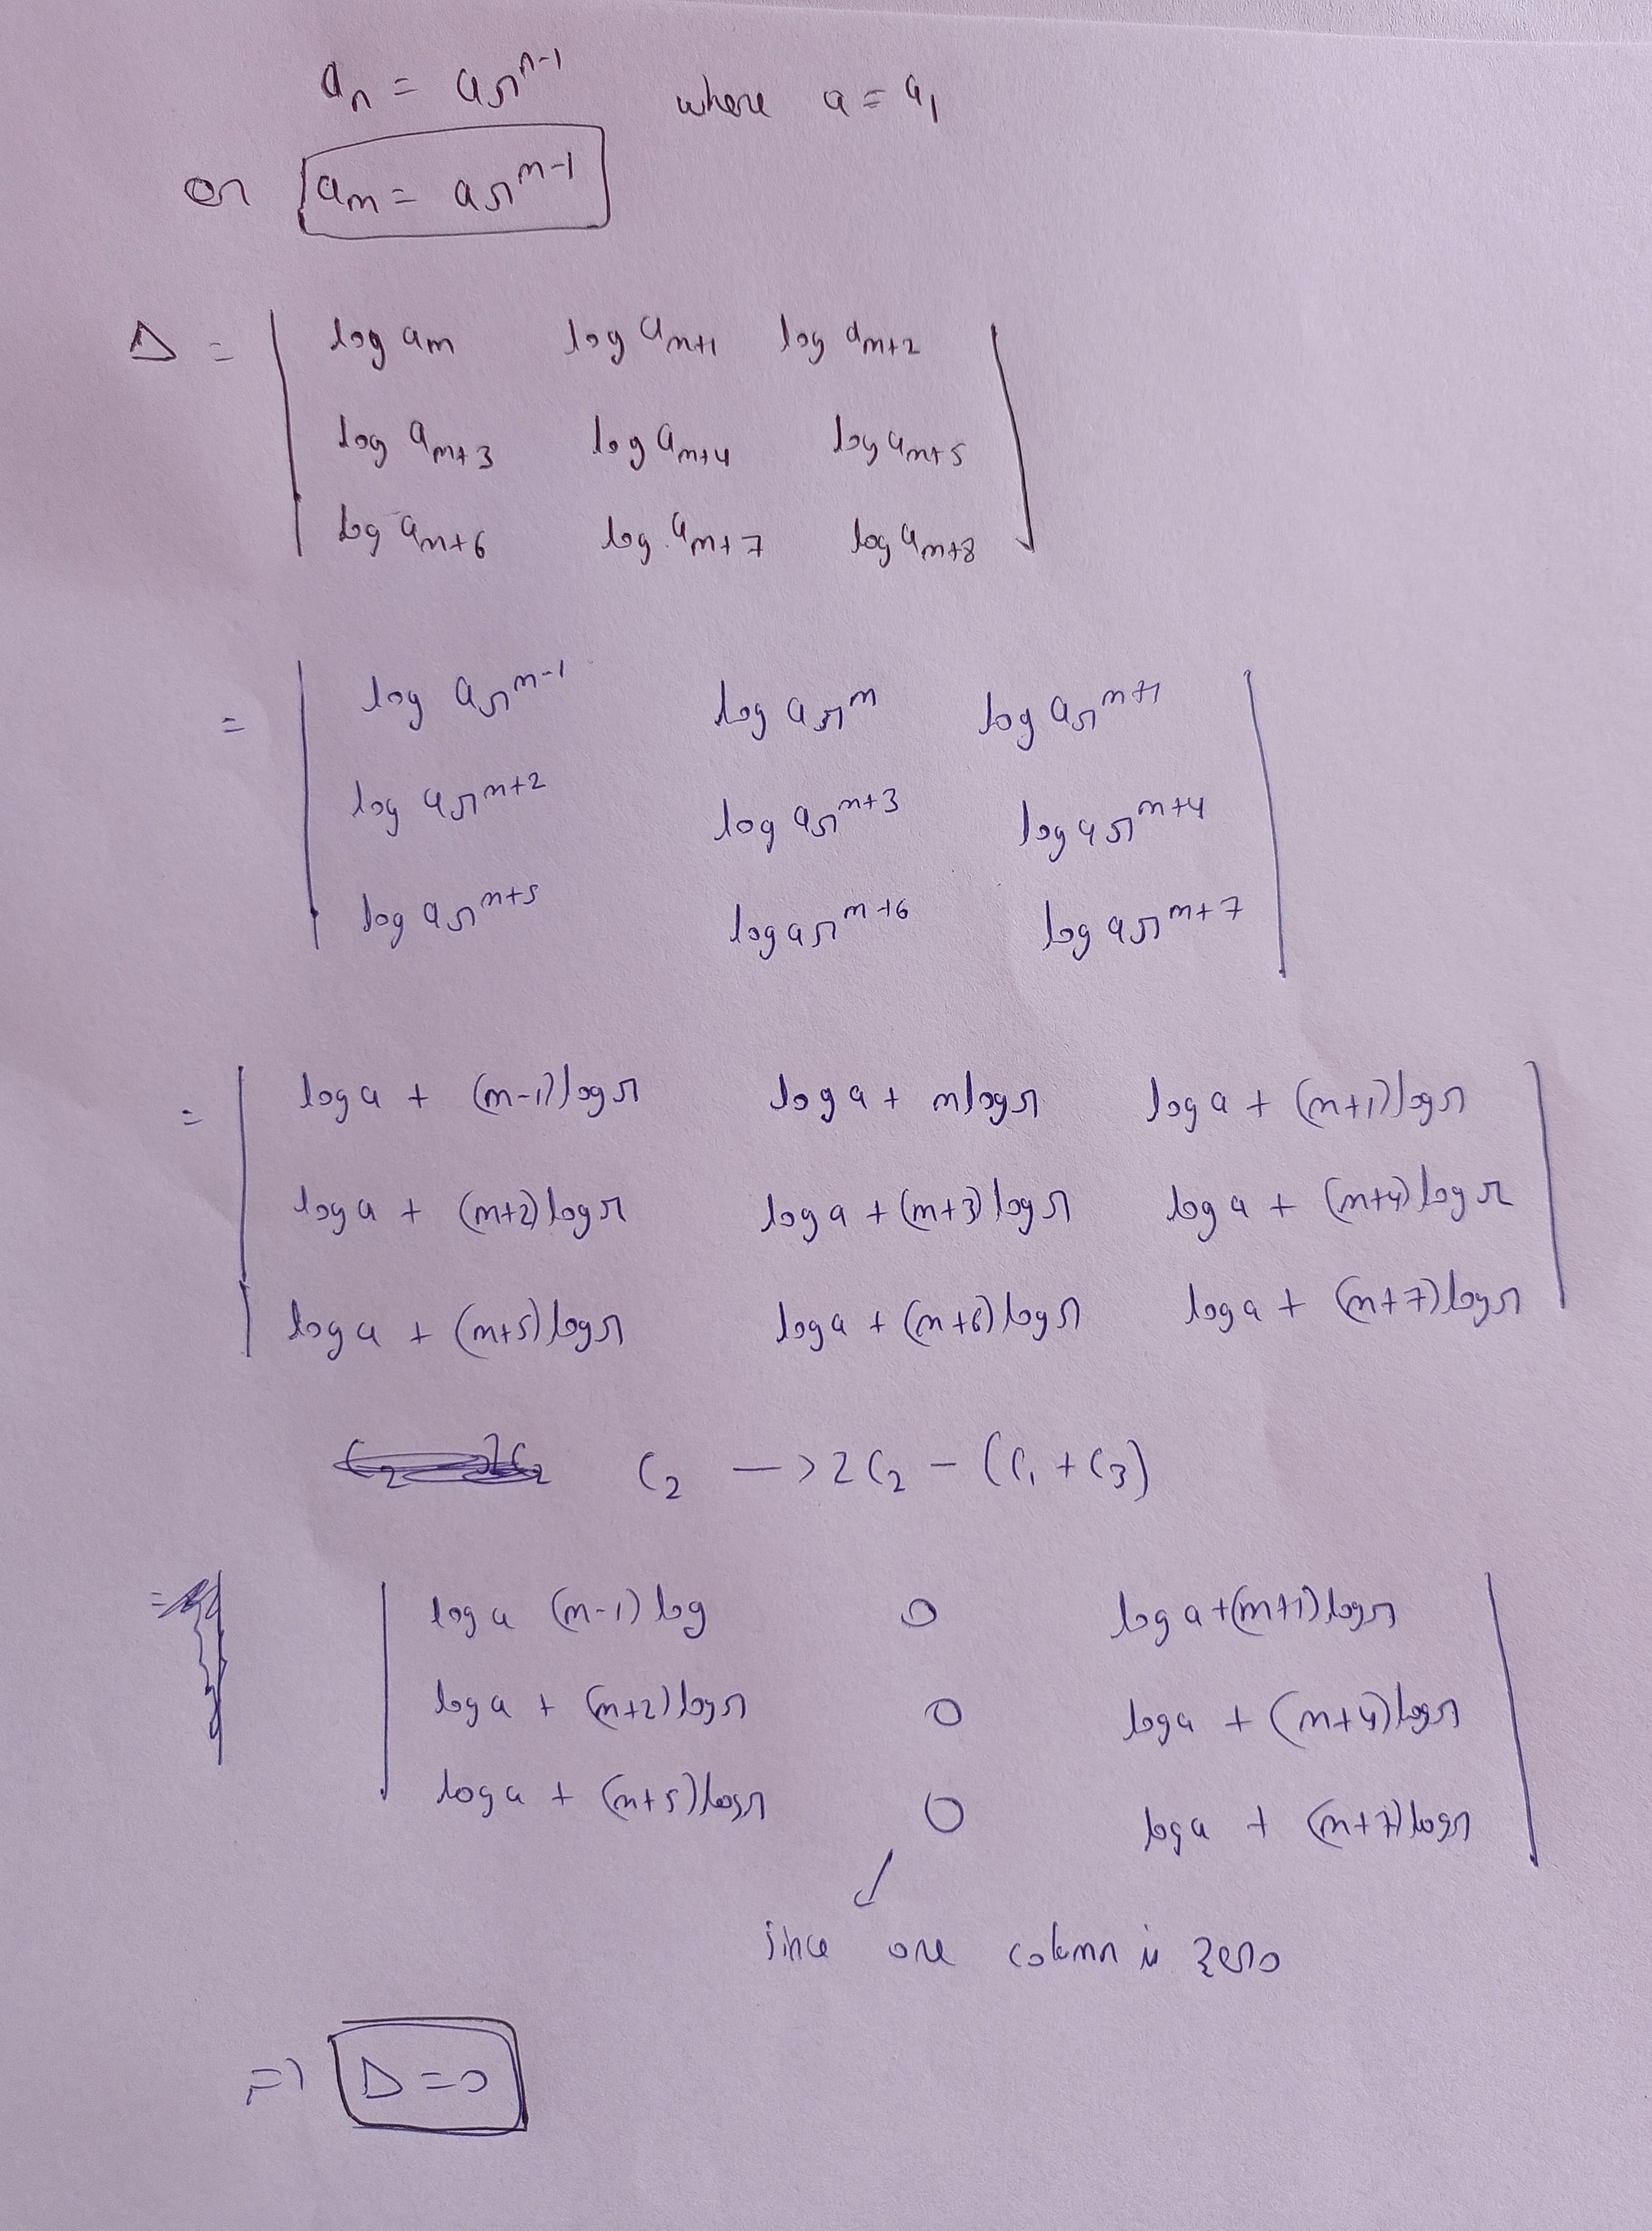 aₙ = arⁿ⁻¹ where a = a₁
or aₘ = arᵐ⁻¹
Δ = | log aₘ log aₘ₊₁ log aₘ₊₂ |
| log aₘ₊₃ log aₘ₊₄ log aₘ₊₅ |
| log aₘ₊₆ log aₘ₊₇ log aₘ₊₈ |
= | log arᵐ⁻¹ log arᵐ log arᵐ⁺¹ |
| log arᵐ⁺² log arᵐ⁺³ log arᵐ⁺⁴ |
| log arᵐ⁺⁵ log arᵐ⁺⁶ log arᵐ⁺⁷ |
= | log a + (m-1) log r log a + m log r log a + (m+1) log r |
| log a + (m+2) log r log a + (m+3) log r log a + (m+4) log r |
| log a + (m+5) log r log a + (m+6) log r log a + (m+7) log r |
C₂ → 2C₂ - (C₁ + C₃)
= | log a (m-1) log 0 log a + (m+1) log r |
| log a + (m+2) log r 0 log a + (m+4) log r |
| log a + (m+5) log r 0 log a + (m+7) log r |
since one column is zero
⇒ Δ = 0